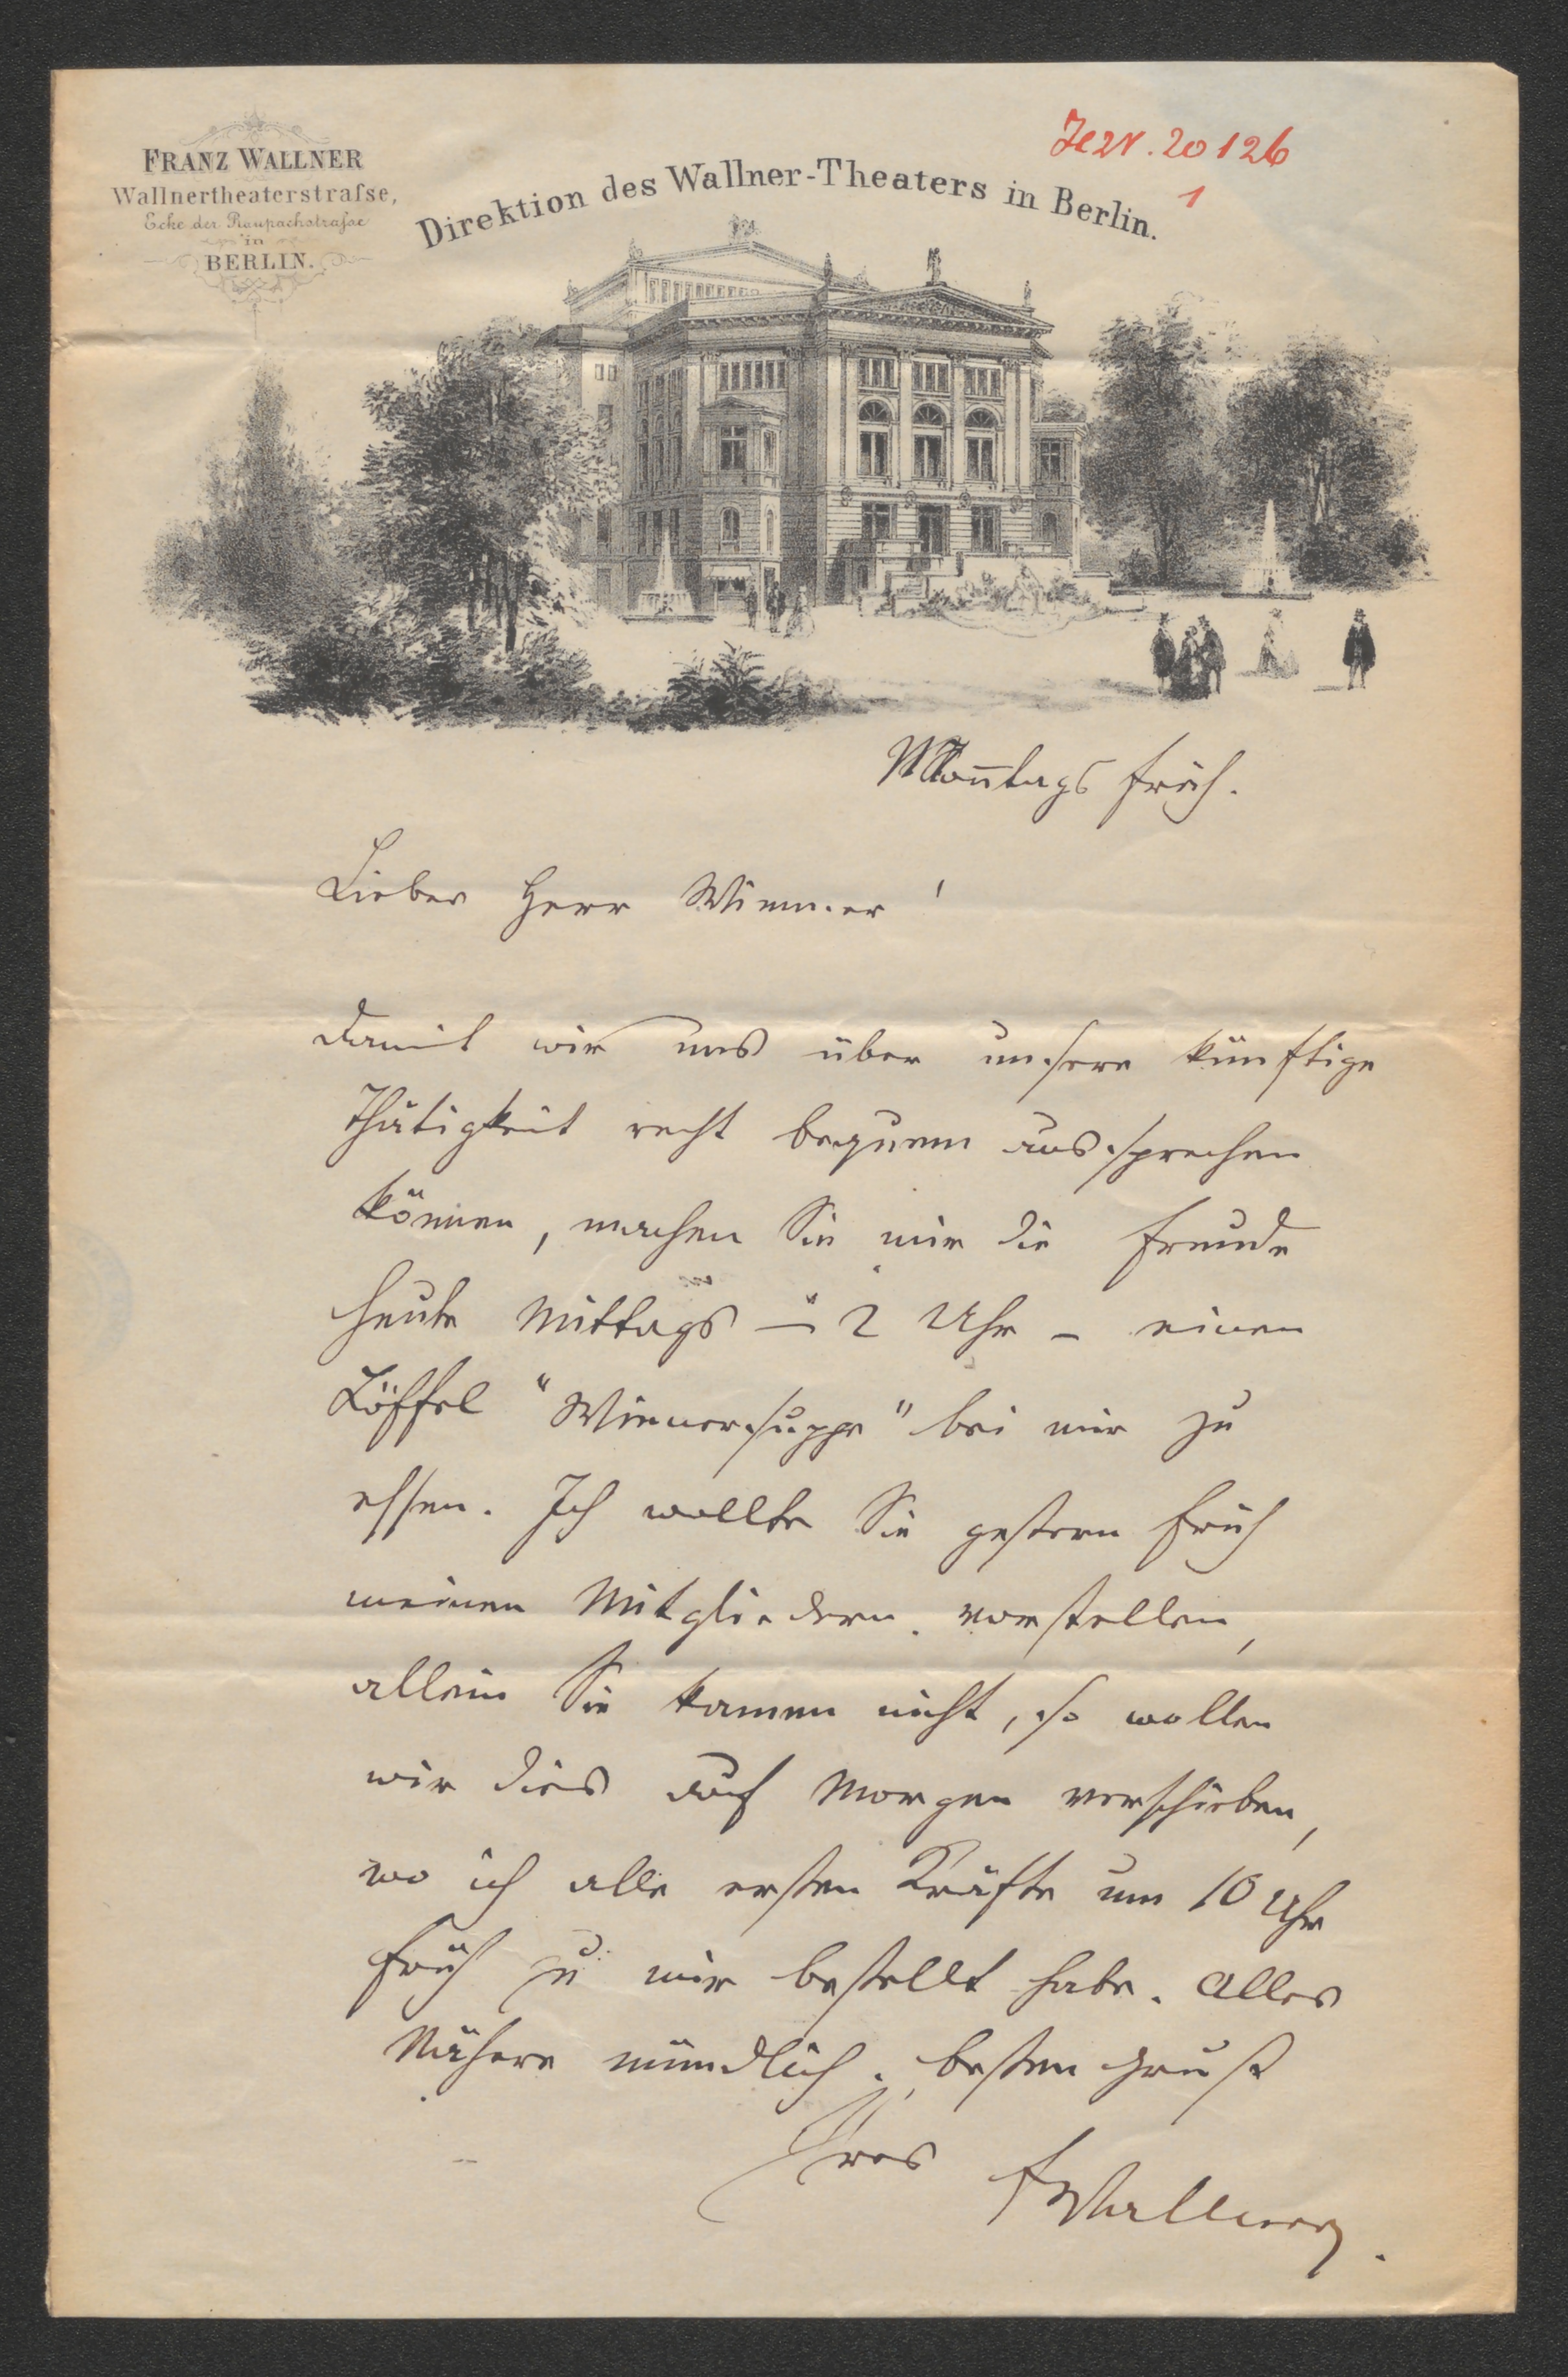 FRANZ WALLNER
Wallnertheaterstraſse,
Ecke der Raupachstraſse
in
BERLIN.
Direktion des Wallner-Theaters in Berlin.
20126
1
Montags früh.
Lieber Herr Wimmer!
Damit wir uns über unsere künftige
Thätigkeit recht bequem aussprechen
können, machen Sie mir die Freude
heute Mittags – 2 Uhr – einen
Löffel "Wienersuppe" bei mir zu
essen. Ich wollte Sie gestern früh
meinen Mitgliedern vorstellen,
allein Sie kamen nicht, so wollen
wir dies auf Morgen verschieben,
wo ich alle ersten Kräfte um 10 Uhr
früh zu mir bestellt habe. Alles
Nähere mündlich. besten Gruß
Ihres FWallner.